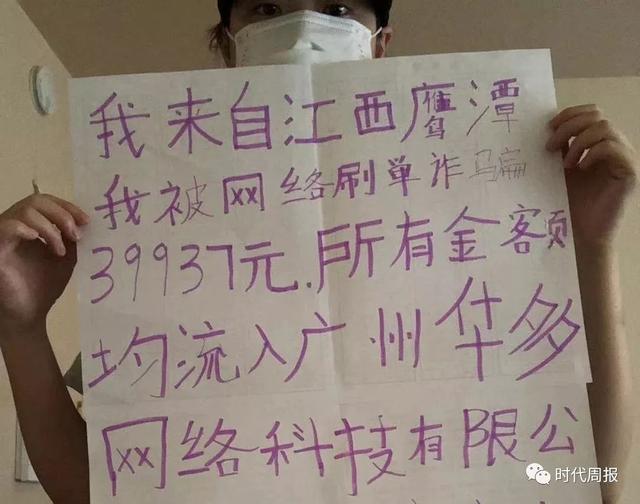 我来自江西鹰潭
我被网络刷单诈骗
39937元.所有金额
均流入广州华多
网络科技有限公
时代周报